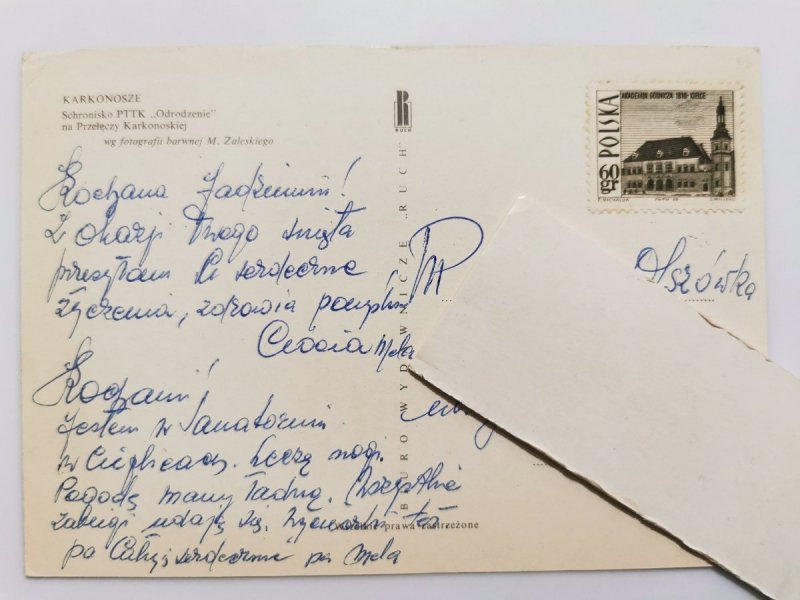 KARKONOSZE
Schronisko PTTK „Odrodzenie"
na Przełęczy Karkonoskiej
wg fotografii barwnej M. Zaleskiego
R
RUCH
BIURO WYDAWNICZE „RUCH"
AKADEMIA GÓRNICZA 1816 · KIELCE
POLSKA
60 gr
Kochana
Z okazji Twego święta
przesyłam Ci serdeczne
życzenia, zdrowia
Ciocia Mela
Olszówka
Kochani!
Jestem w Sanatorium
w Cieplicach. Leczę nogi.
Pogodę mamy ładną. Wszystkie
zabiegi udają się.
pa Całuję serdecznie pa Mela
prawa zastrzeżone